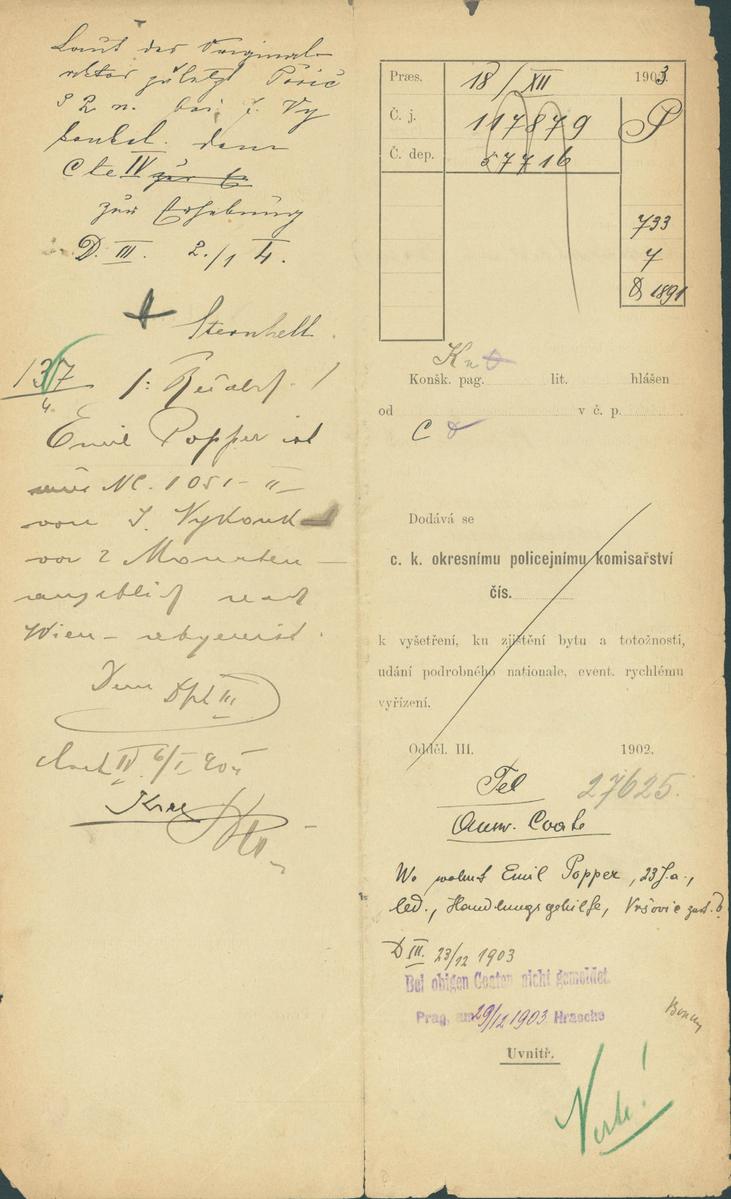 Laut des Original-
aktes zuletzt Pořič
2 n. bei J. Vy
skoukal. dem
Cte IV zur
zur Erhebung
D. III. 2./1 4.
Sternhell
137
4.
Emil Popper ist
NC. 1051-II
von J. Vyskouk
vor 2 Monaten
angeblich nach
Wien abgereist.
Dem Dpt III
IV 6/I 904
Præs. 18/XII 1903
Č. j. 117879 P
Č. dep. 57716
733
7
1891
Konšk. pag. lit. hlášen
od v č. p.
C
Dodává se
c. k. okresnímu policejnímu komisařství
čís.
k vyšetření, ku zjištění bytu a totožnosti,
udání podrobného nationale, event. rychlému
vyřízení.
Odděl. III. 1902.
Tel 27625.
Anw. Coate
Wo wohnt Emil Popper, 23 J. a.,
led., Handlungsgehilfe, Vršovic zust.?
D III. 23/12 1903
Bei obigen Coaten nicht gemeldet.
Prag, am 29/12 1903 Hrasche
Uvnitř.
Verte!